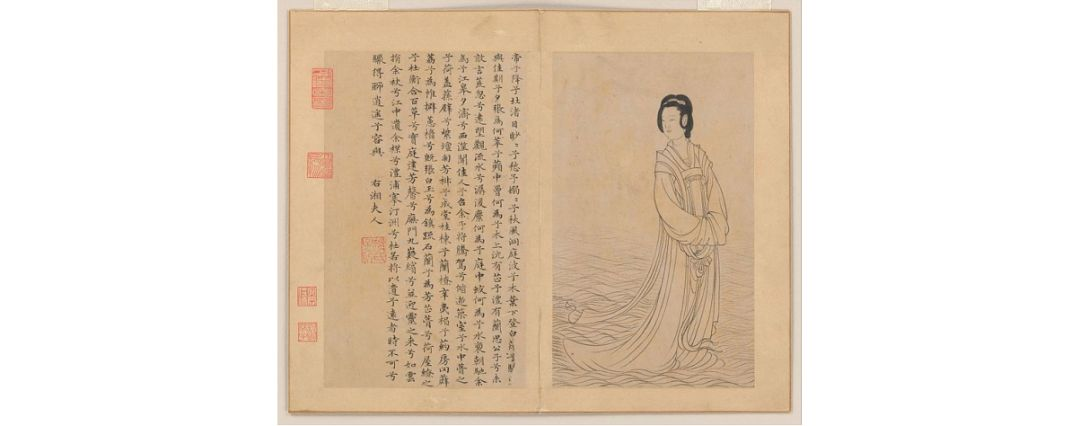 帝子降兮北渚目眇〻兮愁予嫋〻兮秋風洞庭波兮木葉下登白薠兮騁
與佳期兮夕張鳥何萃兮蘋中罾何為兮木上沅有芷兮澧有蘭思公子兮未
敢言荒忽兮遠望觀流水兮潺湲麋何為兮庭中蛟何為兮水裔朝馳余
馬兮江皋夕濟兮西澨聞佳人兮召予將騰駕兮偕逝築室兮水中葺之
兮荷蓋蓀壁兮紫壇匊芳椒兮成堂桂棟兮蘭橑辛夷楣兮葯房罔薜
荔兮為帷擗蕙櫋兮既張白玉兮為鎮疏石蘭兮為芳芷葺兮荷屋繚之
兮杜衡合百草兮實庭建芳馨兮廡門九嶷繽兮並迎靈之來兮如雲
捐余袂兮江中遺余褋兮澧浦搴汀洲兮杜若將以遺兮遠者時不可兮
驟得聊逍遙兮容與 右湘夫人